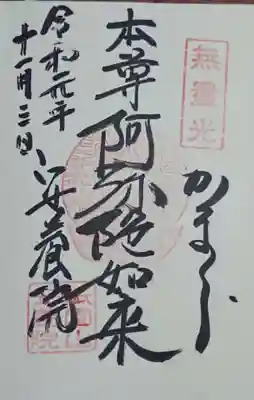 無量光
かまくら
本尊阿弥陀如来
令和元年
十一月三日
安養院